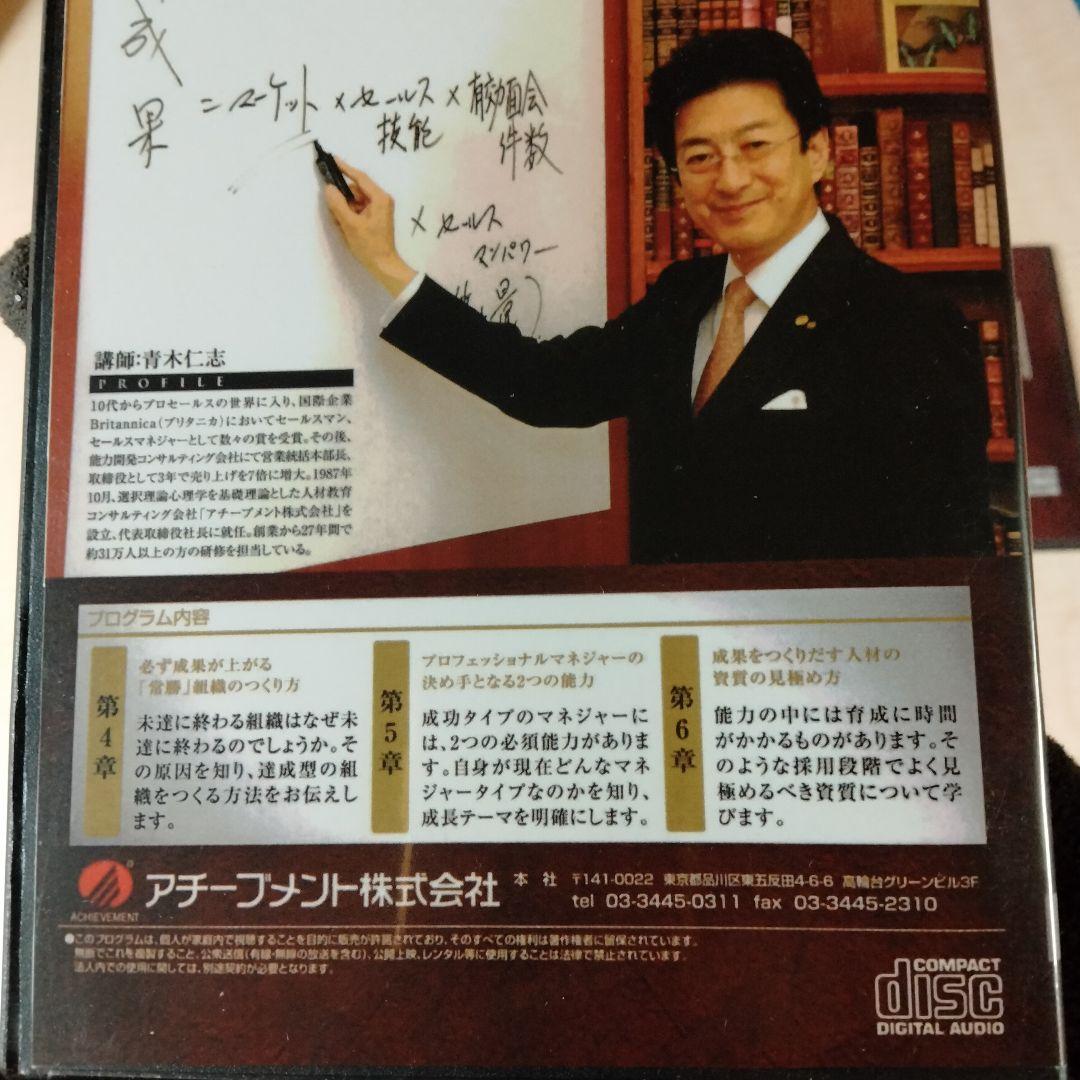 成果
=マーケット×セールス技能×有効面会件数
×セールス
マンパワー
講師:青木仁志
PROFILE
10代からプロセールスの世界に入り、国際企業
Britannica(ブリタニカ)においてセールスマン、
セールスマネジャーとして数々の賞を受賞。その後、
能力開発コンサルティング会社にて営業統括本部長、
取締役として3年で売り上げを7倍に増大。1987年
10月、選択理論心理学を基礎理論とした人材教育
コンサルティング会社「アチーブメント株式会社」を
設立、代表取締役社長に就任。創業から27年間で
約31万人以上の方の研修を担当している。
プログラム内容
第4章
必ず成果が上がる
「常勝」組織のつくり方
未達に終わる組織はなぜ未
達に終わるのでしょうか。そ
の原因を知り、達成型の組
織をつくる方法をお伝えし
ます。
第5章
プロフェッショナルマネジャーの
決め手となる2つの能力
成功タイプのマネジャーに
は、2つの必須能力がありま
す。自身が現在どんなマネ
ジャータイプなのかを知り、
成長テーマを明確にします。
第6章
成果をつくりだす人材の
資質の見極め方
能力の中には育成に時間
がかかるものがあります。そ
のような採用段階でよく見
極めるべき資質について学
びます。
ACHIEVEMENT
アチーブメント株式会社
本社 〒141-0022 東京都品川区東五反田4-6-6 高輪台グリーンビル3F
tel 03-3445-0311 fax 03-3445-2310
●このプログラムは、個人が家庭内で視聴することを目的に販売が許諾されており、そのすべての権利は著作権者に留保されています。
無断でこれを複製すること、公衆送信(有線・無線の放送を含む)、公開上映、レンタル等に使用することは法律で禁止されています。
法人内での使用に関しては、別途契約が必要となります。
COMPACT
disc
DIGITAL AUDIO